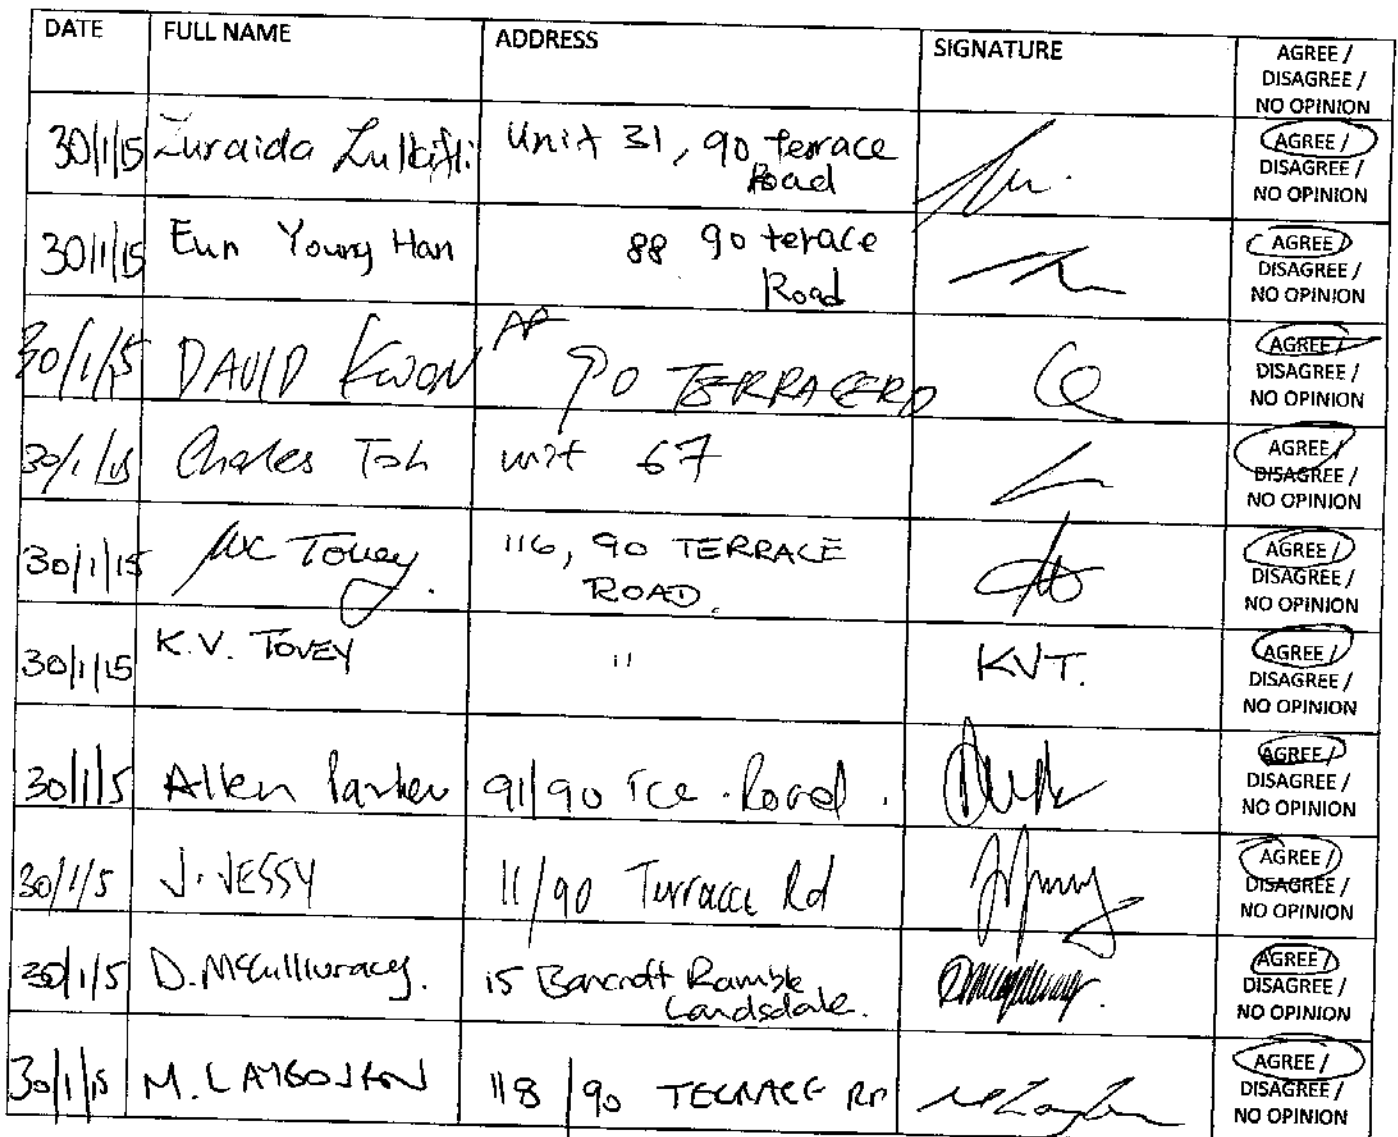 DATE FULL NAME ADDRESS SIGNATURE AGREE /
DISAGREE /
NO OPINION
30/1/15 Zuraida Zulkifli Unit 31, 90 terrace AGREE /
Road DISAGREE /
NO OPINION
30/1/15 Eun Young Han 88 90 terace AGREE /
Road DISAGREE /
NO OPINION
30/1/15 DAVID KWON AP 90 TERRACE RD AGREE /
DISAGREE /
NO OPINION
30/1/15 Charles Toh unit 67 AGREE /
DISAGREE /
NO OPINION
30/1/15 Tovey. 116, 90 TERRACE AGREE /
ROAD. DISAGREE /
NO OPINION
30/1/15 K.V. TOVEY " KVT. AGREE /
DISAGREE /
NO OPINION
30/1/15 Allen Parker 91/90 Tce. Road. AGREE /
DISAGREE /
NO OPINION
30/1/5 J. JESSY 11/90 Terrace Rd AGREE /
DISAGREE /
NO OPINION
30/1/5 D. 15 Bancroft Ramble AGREE /
Landsdale. DISAGREE /
NO OPINION
30/1/15 M. 118/90 TERRACE RD AGREE /
DISAGREE /
NO OPINION